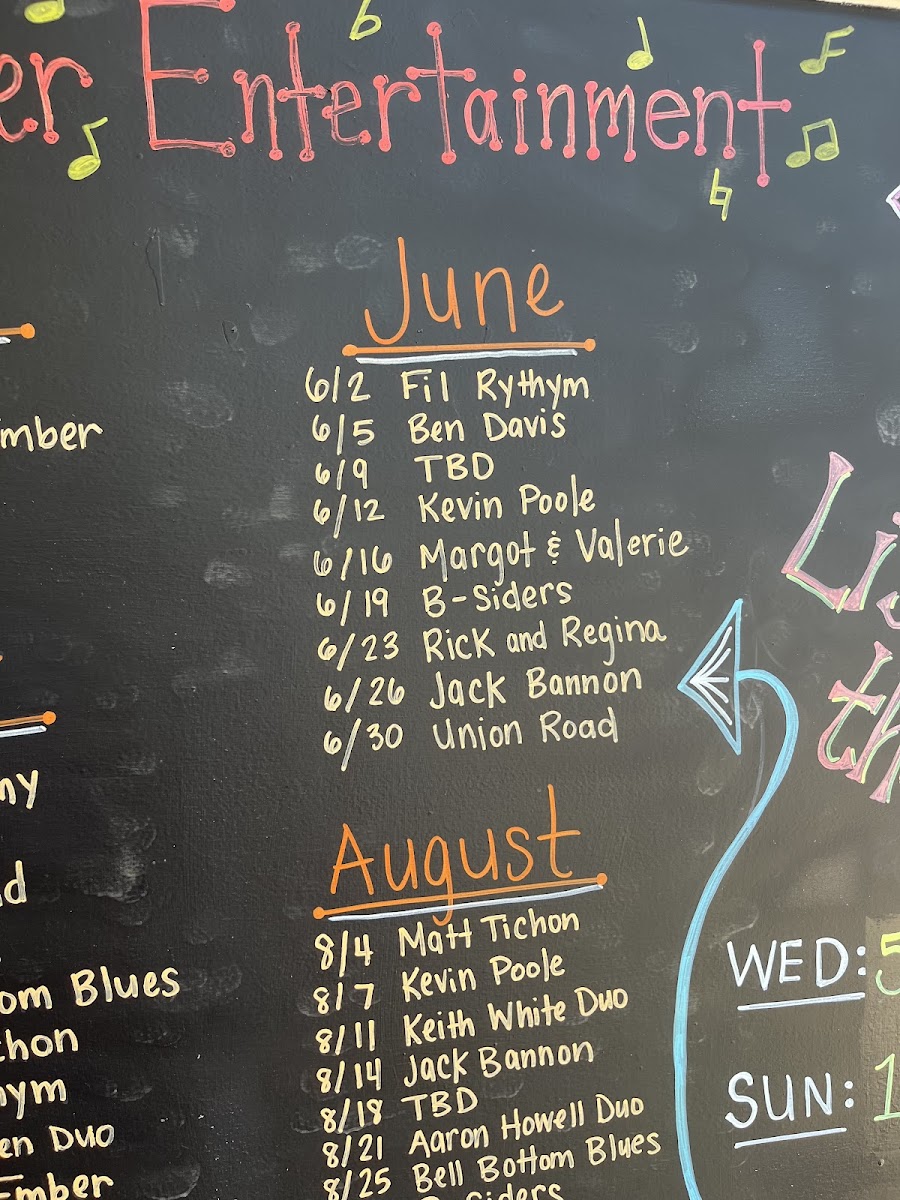 er Entertainment
June
6/2 Fil Rythym
6/5 Ben Davis
6/9 TBD
6/12 Kevin Poole
6/16 Margot & Valerie
6/19 B-Siders
6/23 Rick and Regina
6/26 Jack Bannon
6/30 Union Road
August
8/4 Matt Tichon
8/7 Kevin Poole
8/11 Keith White Duo
8/14 Jack Bannon
8/18 TBD
8/21 Aaron Howell Duo
8/25 Bell Bottom Blues
mber
ny
d
om Blues
chon
ym
en Duo
Ember
Li
th
WED: 5
SUN: 1